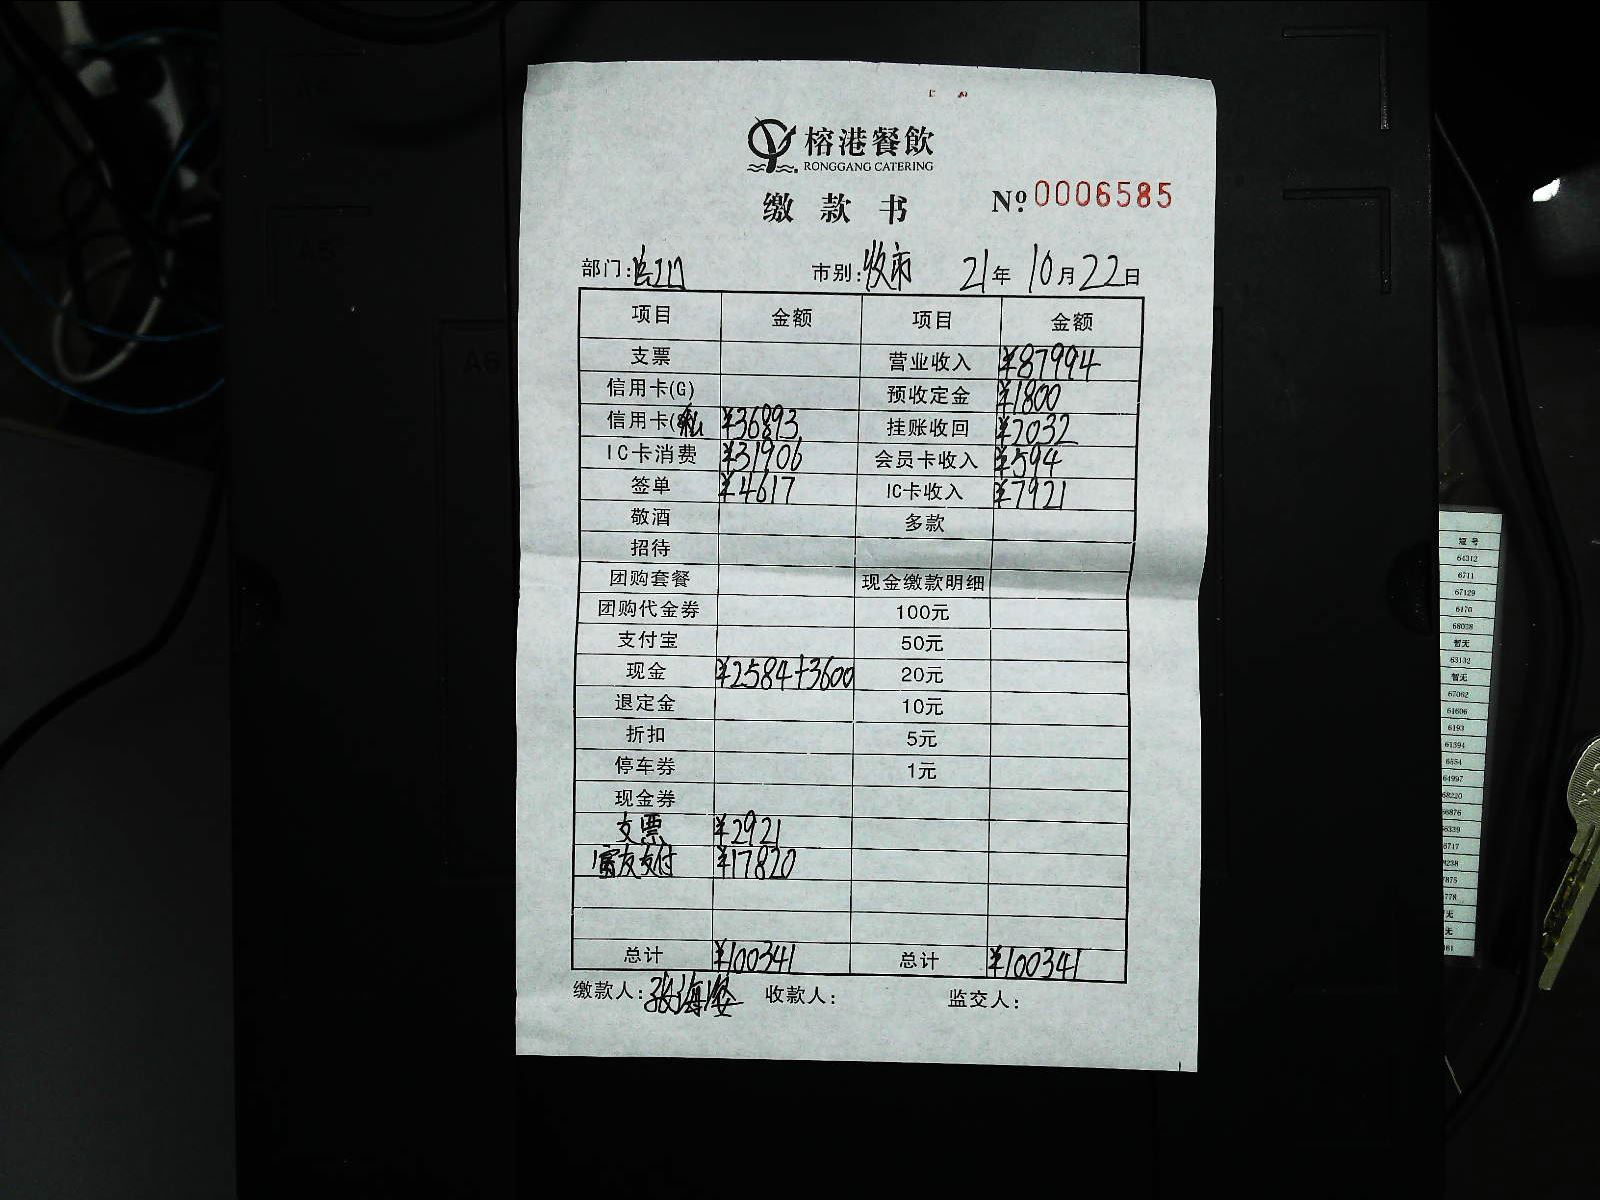 榕港餐飲
RONGGANG CATERING
缴款书 Nº 0006585
部门: 市别:收市 21年10月22日
项目 金额 项目 金额
支票 营业收入 ¥87994
信用卡(G) 预收定金 ¥1800
信用卡(私 ¥36893 挂账收回 ¥2032
IC卡消费 ¥31906 会员卡收入 ¥594
签单 ¥4617 IC卡收入 ¥7921
敬酒 多款
招待
团购套餐 现金缴款明细
团购代金券 100元
支付宝 50元
现金 ¥2584+3600 20元
退定金 10元
折扣 5元
停车券 1元
现金券
支票 ¥2921
富友支付 ¥17820
总计 ¥100341 总计 ¥100341
缴款人: 收款人: 监交人:
短号
64312
6711
67129
6170
暂无
63132
暂无
67062
61606
6193
61394
6654
64997
A6
A5